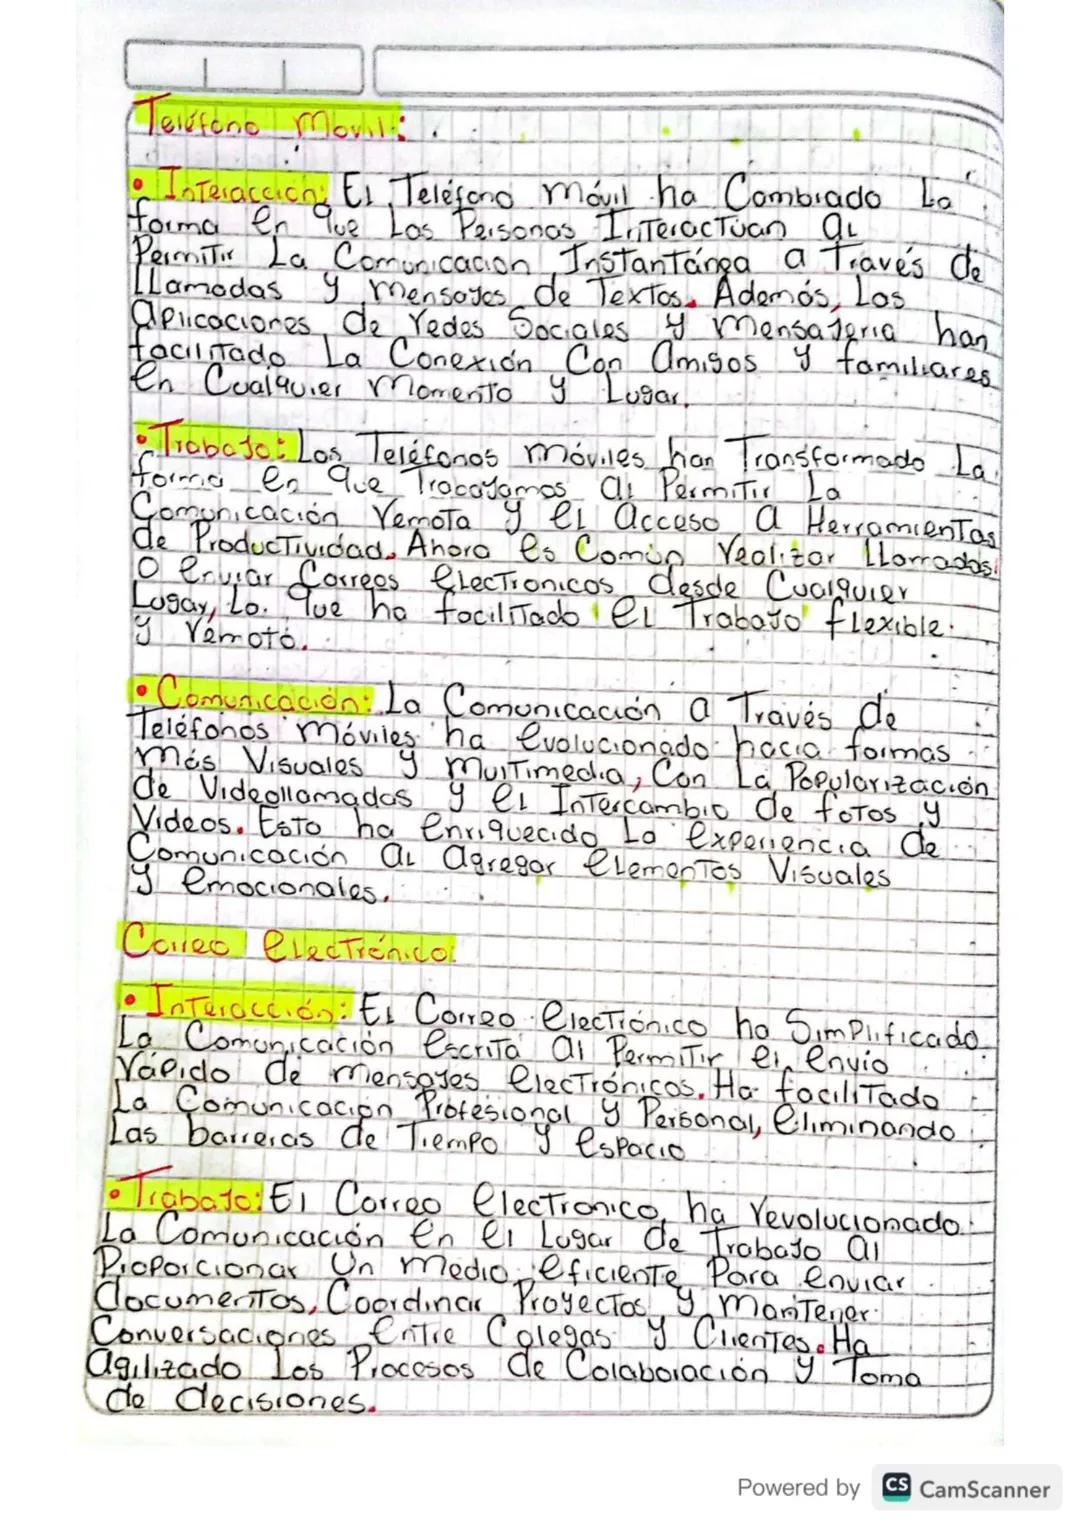 Teléfono Móvil:
• Interacción: El Teléfono móvil ha Cambiado La
forma en que Las Personas Interactúan al
Permitir La Comunicacion Instantánea a Través de
Llamadas y mensajes de Textos. Además, Las
aplicaciones de redes Sociales y mensajeria han
facilitado La Conexión Con amigos y familiares
en Cualquier momento y Lugar.
• Trabajo: Los Teléfonos móviles han Transformado La
forma en que Trabajamos al Permitir La
Comunicación remota y el acceso a Herramientas
de Productividad. Ahora es Común realizar Llamadas
o enviar Correos electronicos desde Cualquier
Lugar, Lo que ha facilitado el Trabajo flexible
y remoto.
• Comunicación: La Comunicación a Través de
Teléfonos móviles ha evolucionado hacia formas
más Visuales y multimedia, Con La Popularización
de Videollamadas y el Intercambio de fotos y
Videos. Esto ha enriquecido La experiencia de
Comunicación al agregar elementos Visuales
y emocionales.
Correo electrónico:
• Interacción: El Correo electrónico ha Simplificado
La Comunicación escrita al Permitir el envio
rápido de mensajes electrónicos. Ha facilitado
La Comunicación Profesional y Personal, eliminando
Las barreras de Tiempo y espacio
• Trabajo: El Correo electronico ha revolucionado
La Comunicación en el Lugar de Trabajo al
Proporcionar Un medio eficiente Para enviar
documentos, Coordinar Proyectos y mantener
Conversaciones entre Colegas y Clientes. Ha
agilizado Los Procesos de Colaboración y Toma
de decisiones.
Powered by CS CamScanner